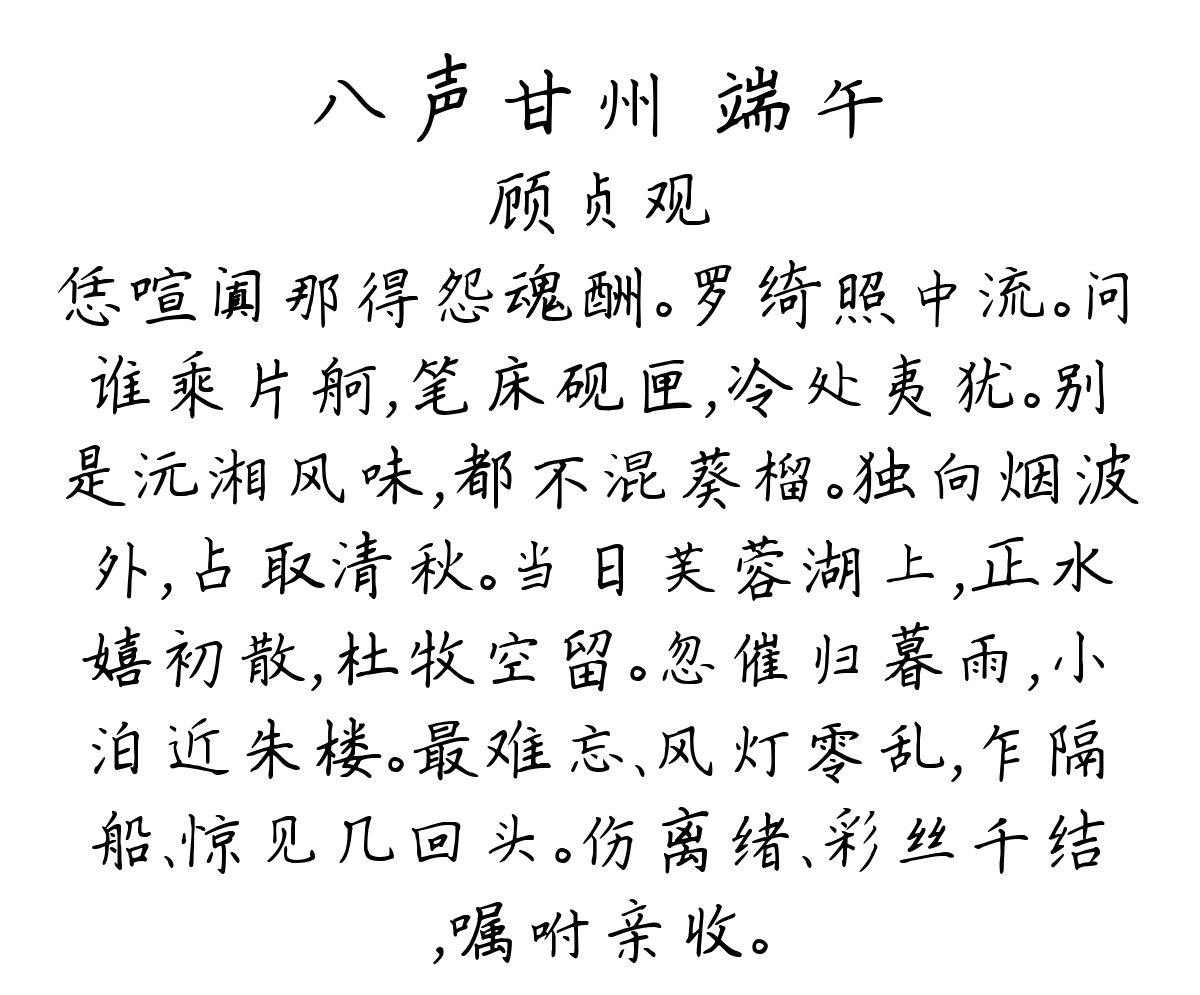 八声甘州 端午
顾贞观
恁喧阗那得怨魂酬。罗绮照中流。问
谁乘片舸,笔床砚匣,冷处夷犹。别
是沅湘风味,都不混葵榴。独向烟波
外,占取清秋。当日芙蓉湖上,正水
嬉初散,杜牧空留。忽催归暮雨,小
泊近朱楼。最难忘、风灯零乱,乍隔
船、惊见几回头。伤离绪、彩丝千结
,嘱咐亲收。